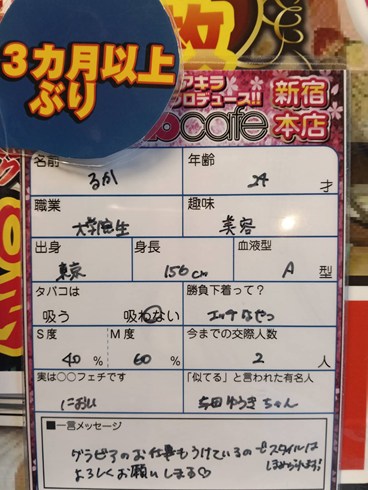 3カ月以上
ぶり
アキラ
プロデュース!!
cafe
新宿
本店
名前
るか
年齢
24 才
職業
大学院生
趣味
美容
出身
東京
身長
156cm
血液型
A 型
タバコは
吸う 吸わない
勝負下着って?
エッチなやつ
S度
40 %
M度
60 %
今までの交際人数
2 人
実は○○フェチです
におい
「似てる」と言われた有名人
与田ゆうきちゃん
■一言メッセージ
グラビアのお仕事もうけているのでスタイルは
よろしくお願いします♡